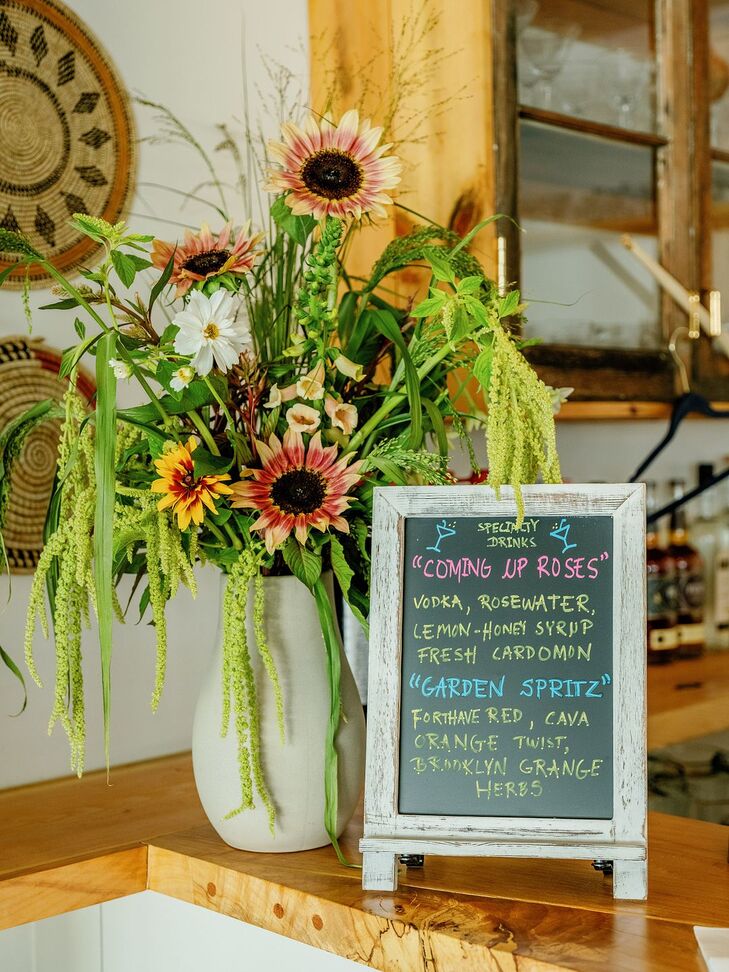 SPECIALTY
DRINKS
"COMING UP ROSES"
VODKA, ROSEWATER,
LEMON-HONEY SYRUP
FRESH CARDOMON
"GARDEN SPRITZ"
FORTHAVE RED, CAVA
ORANGE TWIST,
BROOKLYN GRANGE
HERBS